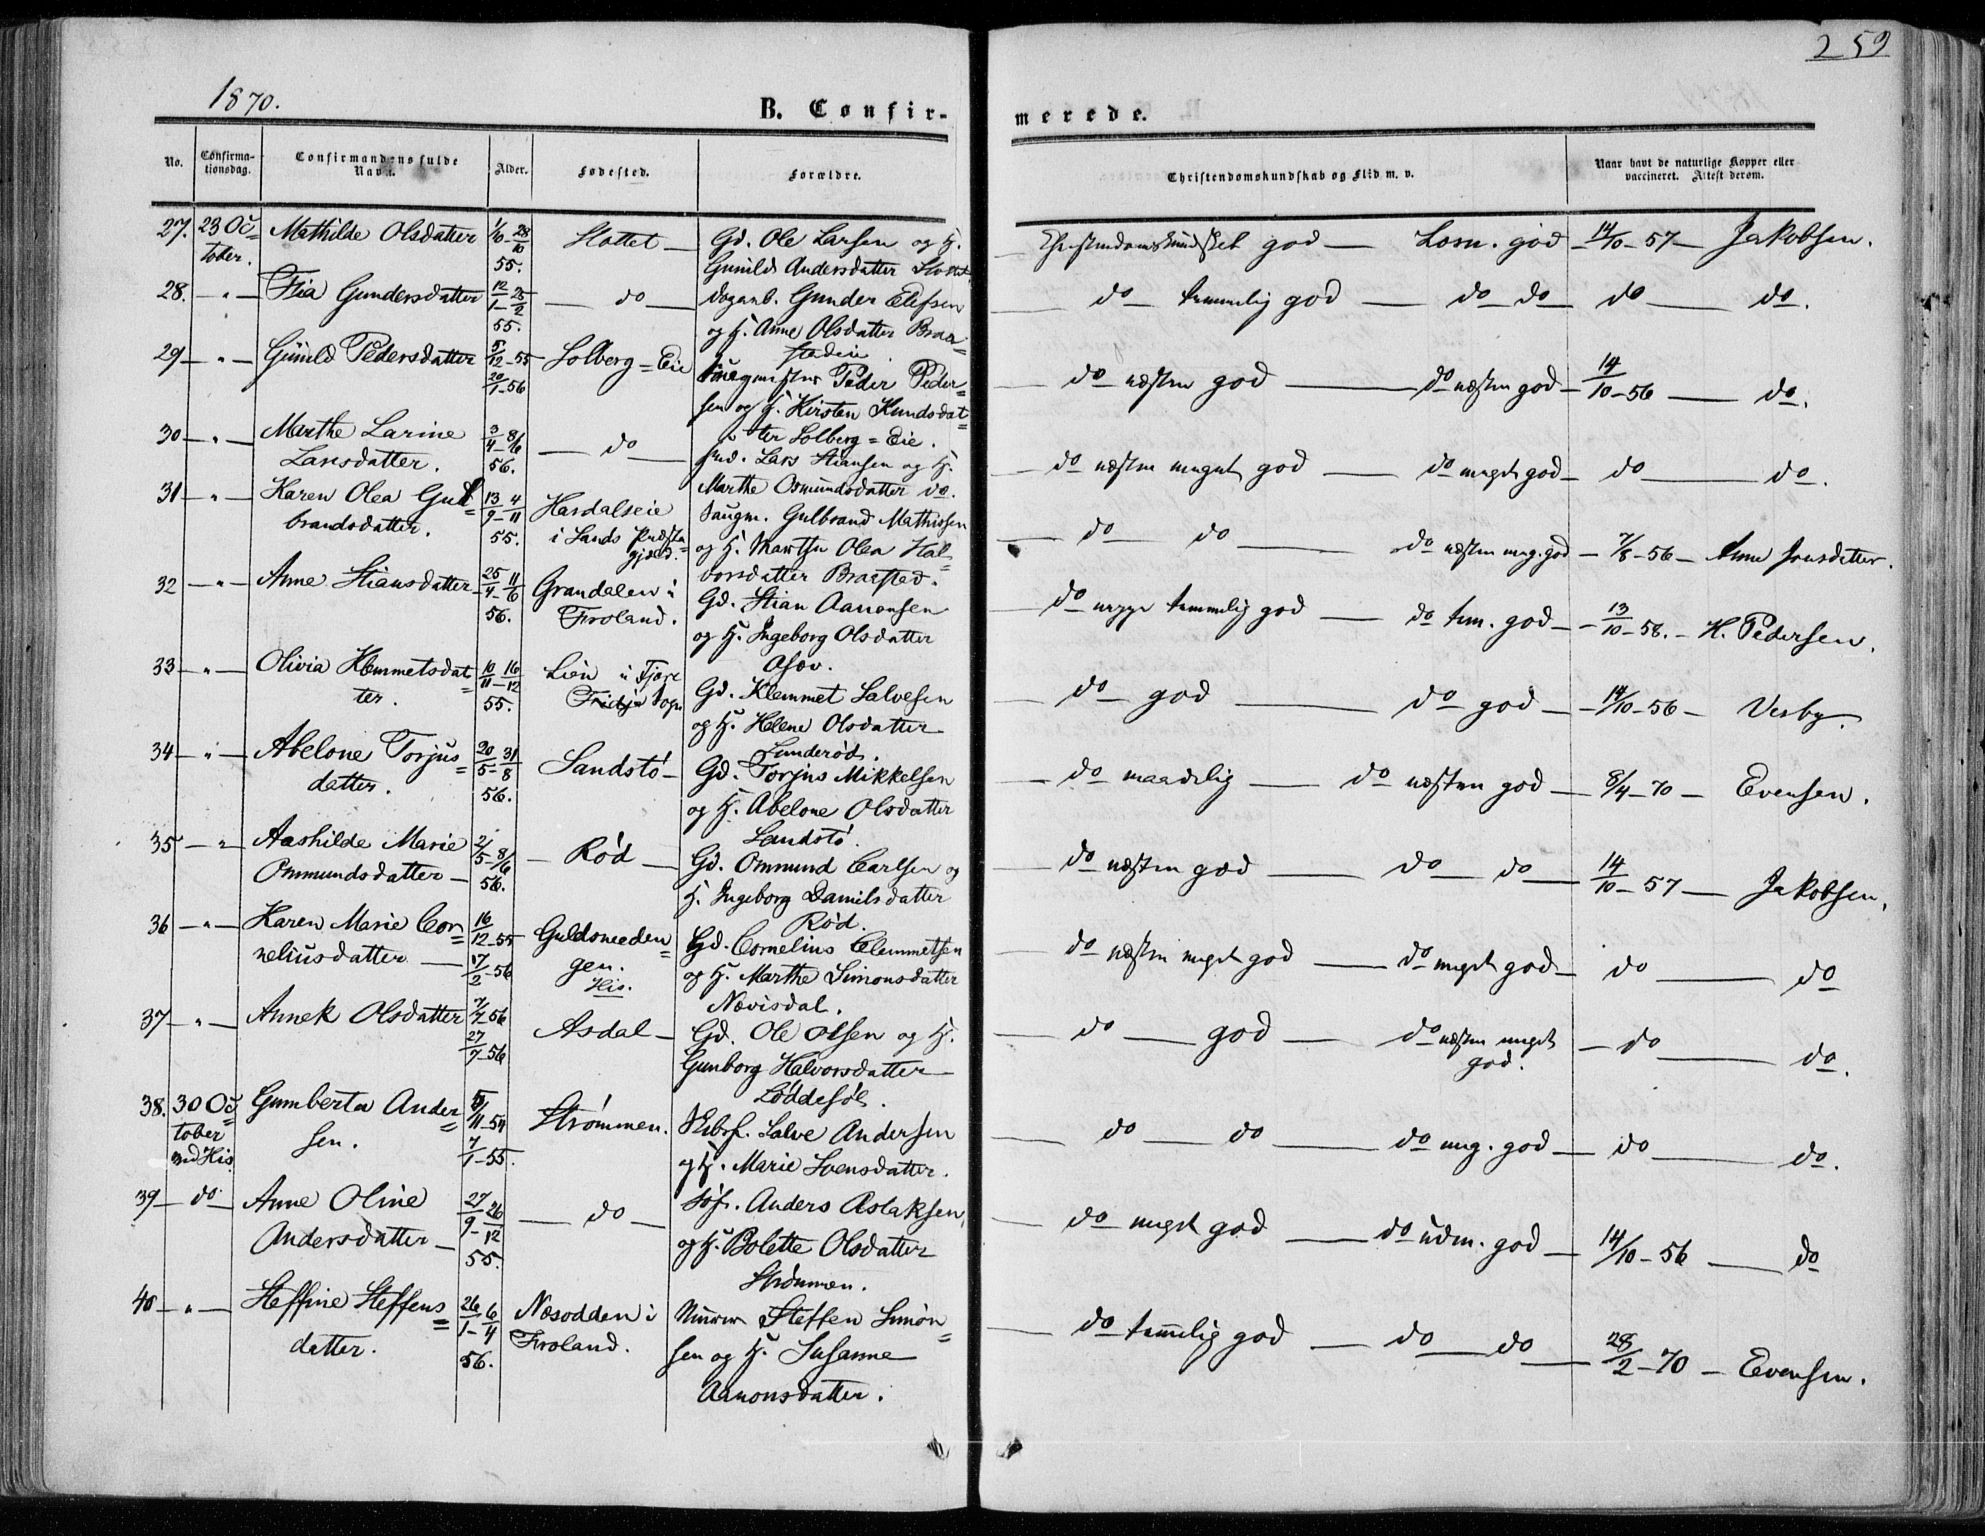 259
1870.
B. Confir- merede.
No. Confirma-tionsdag. Confirmandens fulde Navn. Alder. Fødested. Forældre. Christendomskundskab og Flid m. v. Naar havt de naturlige Kopper eller vaccineret. Attest derom.
27. 23 Oc= Mathilde Olsdatter 1/6 - 28/10 Slottet — Gd. Ole Larsen og H. god — Losn. god — 14/10 - 57 — Jakobsen.
tober. 55. Gunild Andersdatter
28. — " — Gundersdatter 12/1 - 25/2 — do — Gunder Elefsen — do tammelig god — do do — do — do.
55. og H. Anne Olsdatter Braa=
stadeie
29 — " — Gunild Pedersdatter 5/12 - 55 Solberg = Eie Peder Peder= — do næsten god — do næsten god — 14/10 - 56 — do.
20/1 - 56 sen og H. Kirsten Knudsdat=
30 — " — Marthe Larine 3/4 - 8/6 — do — ter Solberg = Eie.
Larsdatter. 56. Lars Stiansen og H. — do næsten meget god — do meget god — do — do.
31 — " — Karen Olea Gul= 13/9 - 4/11 Hardalseie Marthe Osmundsdatter do.
brandsdatter. 55. i Lands Præste= Saugm. Gulbrand Mathissen — do do — do næsten meg. god — 7/8 - 56 — Anne Jensdatter.
gjæld. og H. Marthe Olea Hal=
32 — " — Anne Stiansdatter 25/4 - 11/6 Grandalen i vorsdatter Braasted.
56. Froland. Gd. Stian Aanonsen — do neppe tammelig god — do tem. god — 13/10 - 58. — H. Pedersen.
og H. Ingeborg Olsdatter
33 — " — Olivia Klemmetsdat= 10/11 - 16/12 Lien i Fjære
ter. 55. Sogn Gd. Klemmet Salvesen — do god — do god — 14/10 - 56 — Vesby.
og H. Helene Olsdatter
34 — " — Abelone Torjus= 20/5 - 31/8 Sandstø — Lunderød.
datter. 56. Gd. Torjus Mikkelsen — do maadelig — do næsten god — 8/4 - 70 — Evensen.
og H. Abelone Olsdatter
35 — " — Aashilde Marie 2/5 - 8/6 — Rød — Sandstø.
Ommundsdatter — 56. Gd. Ommund Carlsen og — do næsten god — do do — 14/10 - 57 — Jakobsen.
H. Ingeborg Danielsdatter
36 — " — Karen Marie Cor= 16/12 - 55 Guldsmeden= Rød.
neliusdatter — 17/2 - 56 gen. Gd. Cornelius Clemmetsen — do næsten meget god — do meget god — do — do
His. og H. Marthe Simonsdatter
37 — " — Annek Olsdatter 7/4 - 56 Asdal — Nævisdal.
27/7 - 56 Gd. Ole Olsen og H. — do — god — do næsten meget — do — do.
Gunborg Halvorsdatter god.
38. 30 Oc= Gumberta Ander= 5/11 - 54 Strømmen. Løddesøl.
tober sen. 7/1 - 55. Skibsf. Salve Andersen — do — do — do meg. god — do — do.
ved His og H. Marie Svensdatter.
39 — do — Anne Oline 27/9 - 26/12 — do — Søf. Anders Aslaksen — do meget god — do udm. god — 14/10 - 56 — do
Andersdatter — 55. og H. Bolette Olsdatter
Strømmen.
40 — " — Steffine Steffens= 26/1 - 6/4 Næsodden i Steffen Simon= — do tammelig god — do do — 28/2 - 70 — Evensen.
datter. 56. Froland. sen og H. Susanne
Aanonsdatter.